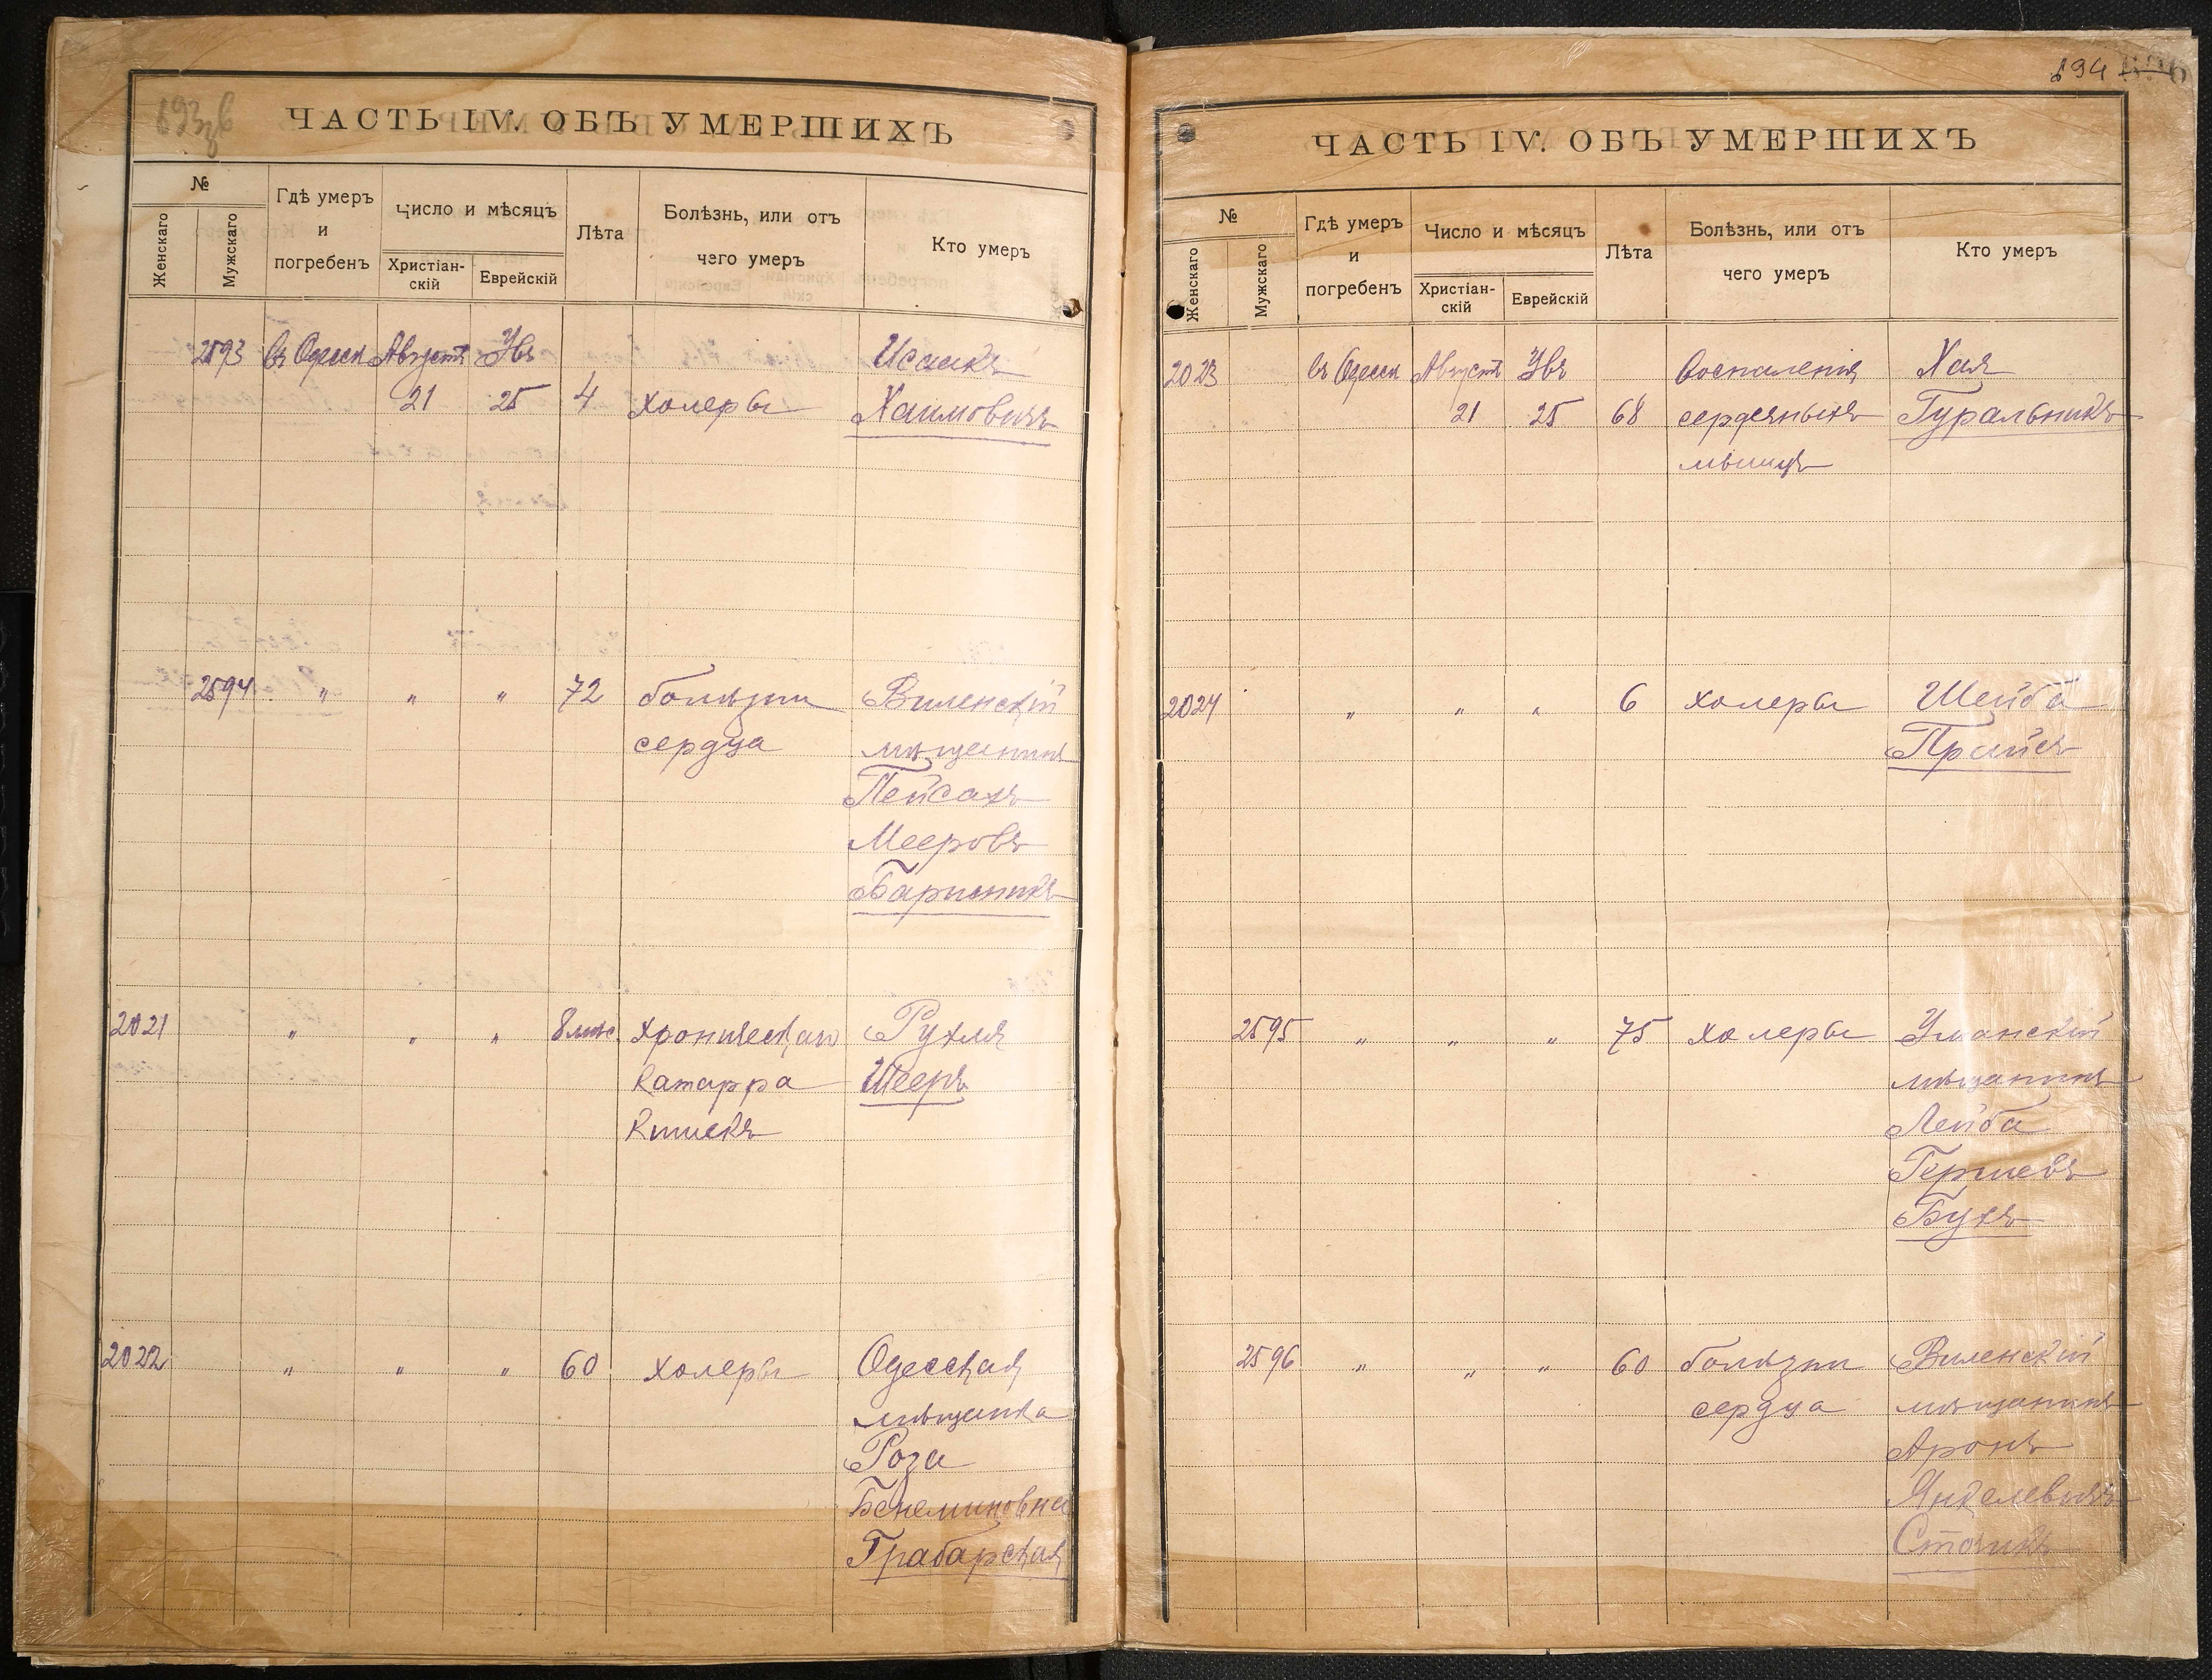 ЧАСТЬ IV. ОБЪ УМЕРШИХЪ
№
Женскаго
Мужскаго
Гдѣ умеръ
и
погребенъ
Число и мѣсяцъ
Христіан-
скій
Еврейскій
Лѣта
Болѣзнь, или отъ
чего умеръ
Кто умеръ
2593 въ Одессѣ Августа Увъ Исаакъ
21 25 4 холеры Хаимовичъ
2594 " " " 72 болѣзни Виленскій
сердца мѣщанинъ
Пейсахъ
Мееровъ
2021 " " " 8 мѣс. хроническаго Рухля
катарра Шееръ
кишекъ
2022 " " " 60 холеры Одесская
мѣщанка
Роза
Бенеминовна
Грабарская
894
ЧАСТЬ IV. ОБЪ УМЕРШИХЪ
№
Женскаго
Мужскаго
Гдѣ умеръ
и
погребенъ
Число и мѣсяцъ
Христіан-
скій
Еврейскій
Лѣта
Болѣзнь, или отъ
чего умеръ
Кто умеръ
2023 въ Одессѣ Августа Увъ Воспаленія Хая
21 25 68 сердечныхъ Гуральникъ
мышцъ
2024 " " " 6 холеры Шейба
Прайсъ
2595 " " " 75 холеры Уманскій
мѣщанинъ
Лейба
Гершевъ
Бухъ
2596 " " " 60 болѣзни Виленскій
сердца мѣщанинъ
Аронъ
Янкелевичъ